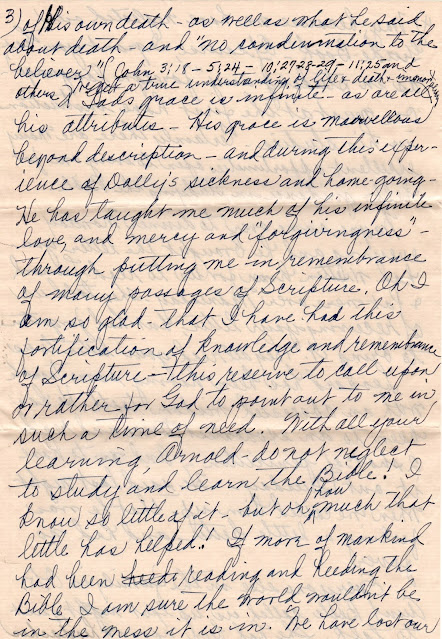 3) of His own death - as well as what he said
about death - and "no condemnation to the
believer," (John 3:18 - 5:24 - 10:27-28-29 - 11:25 and
others) to get a true understanding of life & death & immortality
God's grace is infinite - as are all
his attributes - His grace is marvellous
beyond description - and during this exper-
ience of Dolly's sickness and home-going -
He has taught me much of his infinite
love, and mercy and "forgivingness" -
through putting me in remembrance
of many passages of Scripture. Oh I
am so glad - that I have had this
fortification of knowledge and remembrance
of Scripture - this reserve to call upon
or rather for God to point out to me in
such a time of need. With all your
learning, Arnold - do not neglect
to study and learn the Bible! I
know so little of it - but oh, how much that
little has helped! If more of mankind
had been reading and heeding the
Bible I am sure the world wouldn't be
in the mess it is in. We have lost our